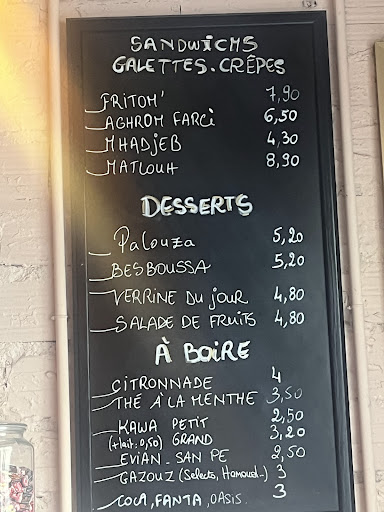 SANDWICHS
GALETTES. CRÊPES
_FRITOM' 7,90
_AGHROM FARCI 6,50
_MHADJEB 4,30
_MATLOUH 8,90
DESSERTS
_Palouza 5,20
_BESBOUSSA 5,20
_VERRINE DU JOUR 4,80
_SALADE DE FRUITS 4,80
À BOIRE
_CITRONNADE 4
_THÉ À LA MENTHE 3,50
_KAWA PETIT 2,50
(+lait: 0,50) GRAND 3,20
_EVIAN_SAN PE 2,50
_GAZOUZ (Selecto, Hamoud_) 3
_COCA, FANTA, OASIS. 3